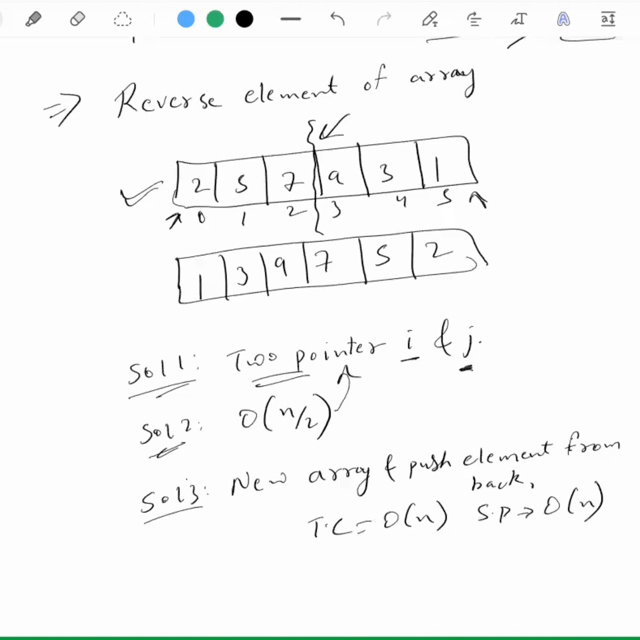 => Reverse element of array
2 5 7 9 3 1
0 1 2 3 4 5
1 3 9 7 5 2
Sol 1: Two pointer i & j.
Sol 2: O(n/2)
Sol 3: New array & push element from
back,
T.C = O(n) S.P → O(n)